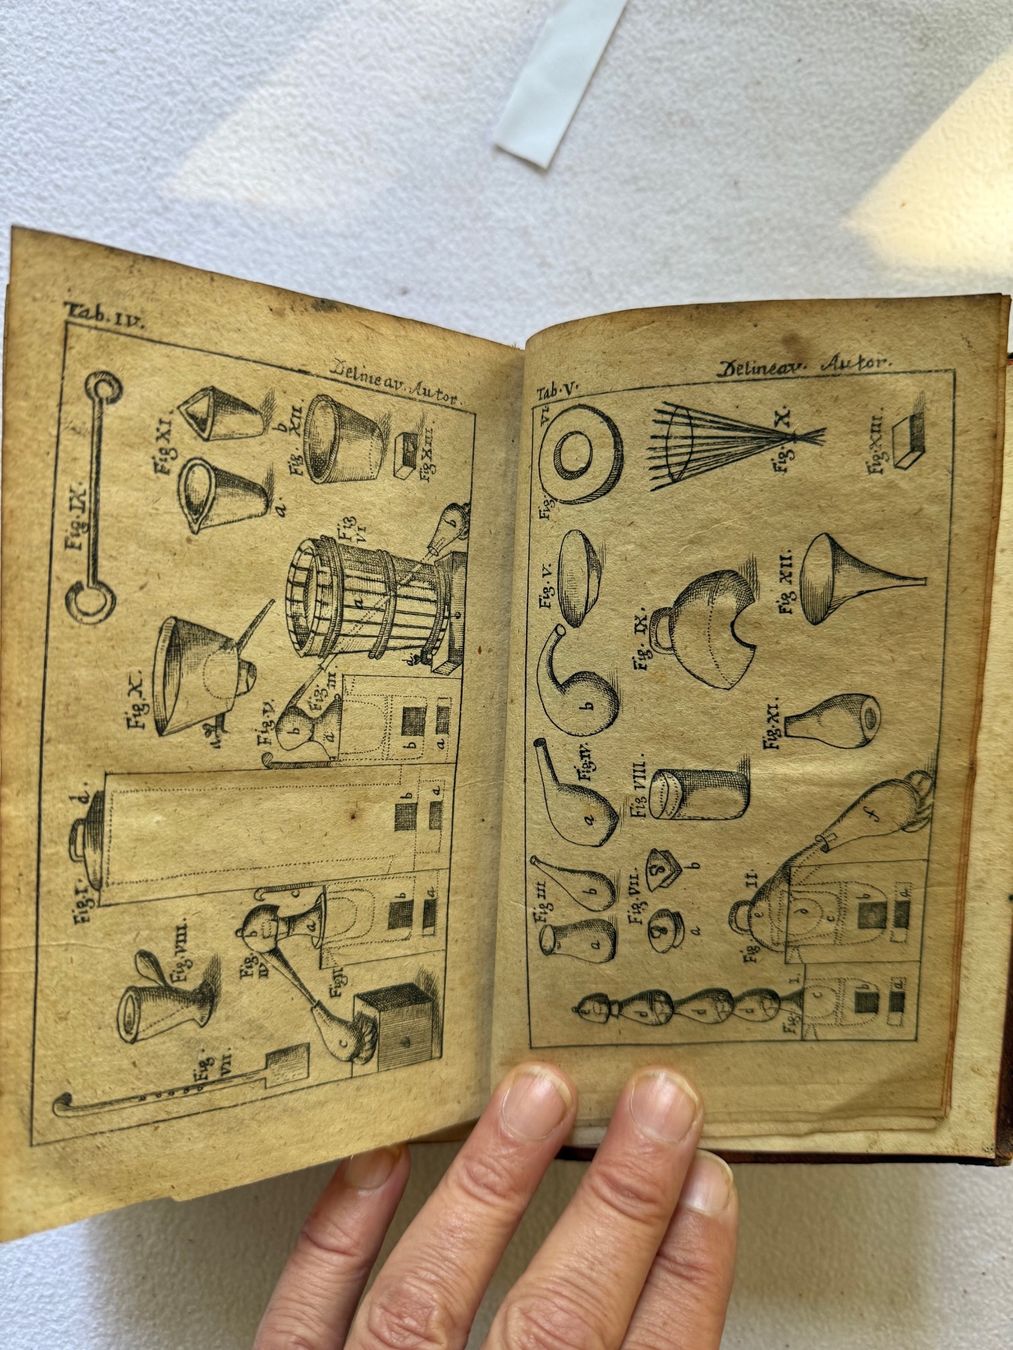 Tab. IV.
Delineav. Autor.
Fig. IX.
Fig. XI.
b
a
Fig. XII.
Fig. XIII.
Fig. X.
a
Fig. VI
a
b
d
Fig. V.
Fig. III
b
a
b
a
Fig. I.
d.
b
a
Fig. VIII.
Fig. IV
b
c
a
Fig. II
b
a
c
Fig. VII.
Tab. V.
Delineav. Autor.
Fig. VI.
Fig. X.
Fig. XIII.
Fig. V.
Fig. IX.
Fig. XII.
b
Fig. IV.
a
Fig. VIII.
Fig. XI.
Fig. III
b
a
Fig. VII.
8
b
8
a
Fig. II.
e
d
c
b
a
f
Fig. I.
e
d
d
d
c
b
a